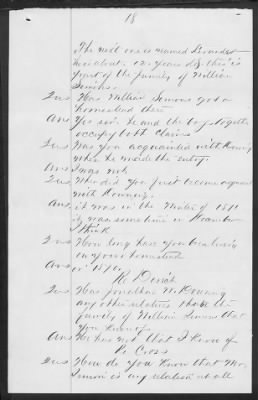 18
The next one is named
he is about 12 years old this is
part of the family of William
Simons
Qus Has William Simons got a
homestead there
Ans Yes sir he and the boy together
occupy both claims
Qus Was you acquainted with
when he made the entry
Ans I was not
Qus When did you first become acquainted
with
Ans it was in the Winter of 1871
it was some time in December
I think
Qus How long have you been living
on your homestead
Ans in 1870
Re Direct
Qus Has Jonathan W.
any other relatives than the
family of William Simons that
you know of
Ans He has not that I know of
Re Cross
Qus How do you know that Mr.
Simons is any relation at all